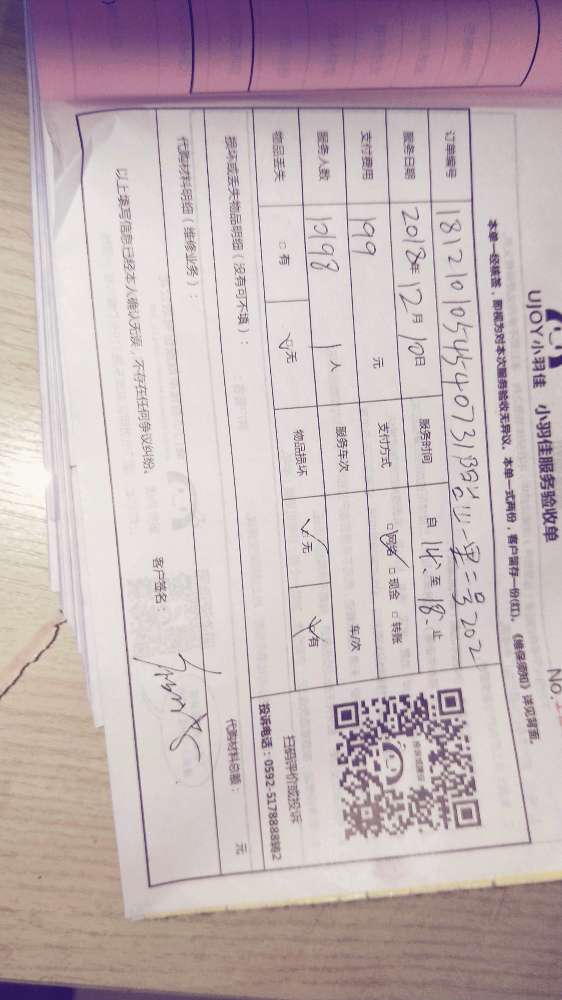 UJOY小羽佳 小羽佳服务验收单
No.
本单一经核签，即视为对本次服务验收无异议。本单一式两份，客户留存一份(红)。《维保须知》详见背面。
订单编号 18121010545454073 二号202
服务日期 2018年12月10日 服务时间 自 14: 至 18: 止
支付费用 199 元 支付方式 □网络 □现金 □转账
服务人数 1人 服务车次 车/次
物品丢失 □有 □无 物品损坏 □无 □有
损坏或丢失物品明细（没有可不填）：
扫码评价或投诉
投诉电话：0592-5178888转2
代购材料明细（维修业务）： 代购材料总额： 元
以上填写信息已经本人确认无误，不存在任何争议纠纷。 客户签名：